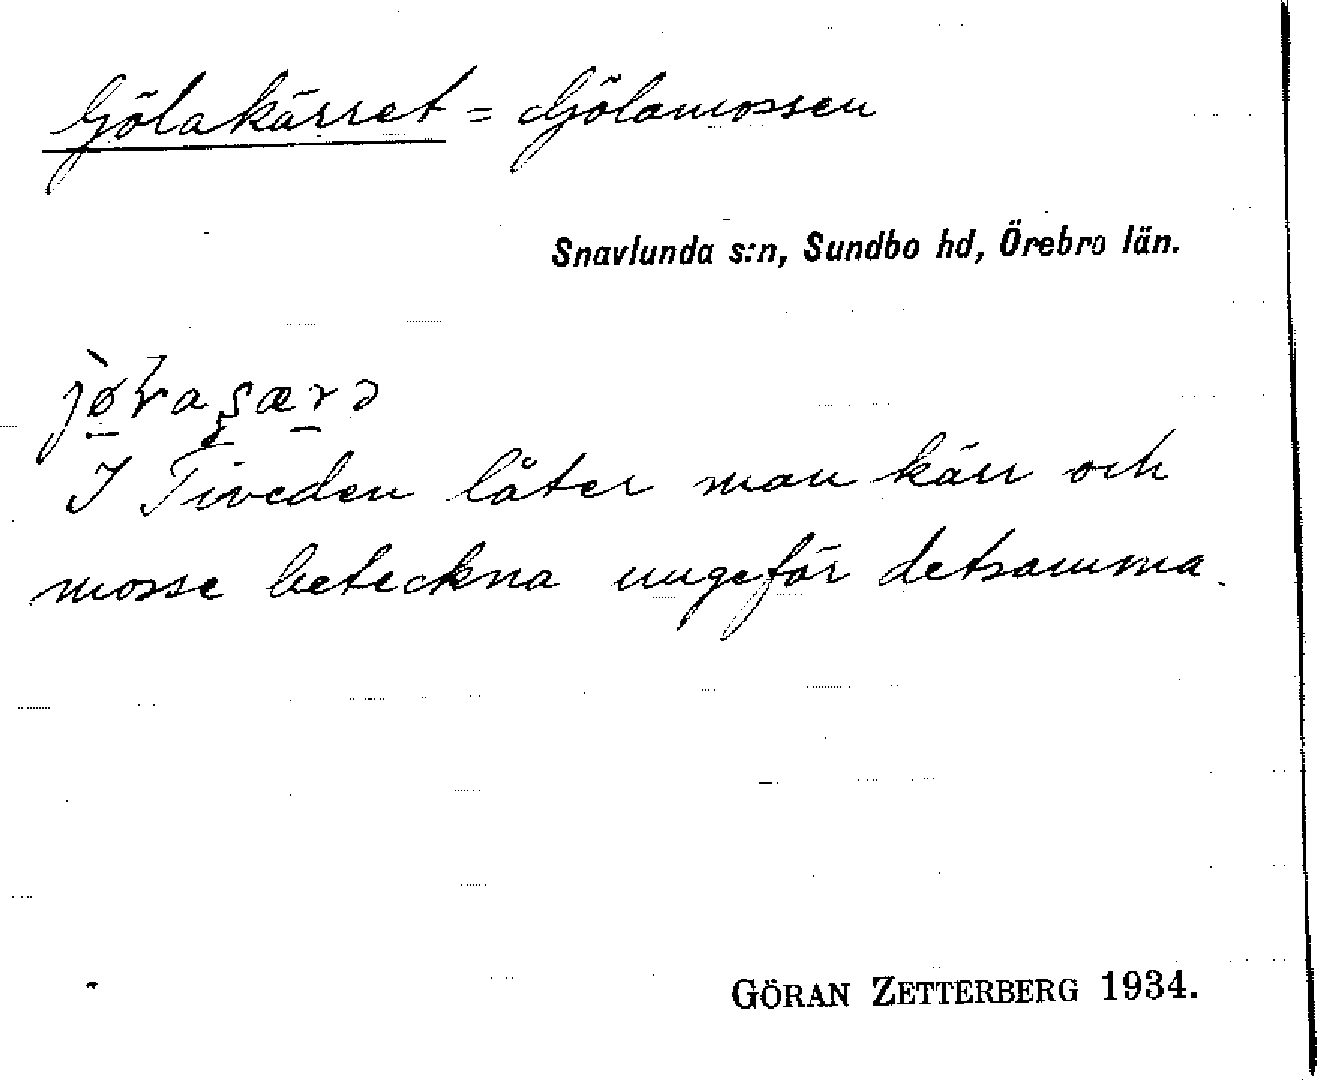 Gölakärret = Gölamossen
Snavlunda s:n, Sundbo hd, Örebro län.
I Tiveden låter man kärr och
mosse beteckna ungefär detsamma.
GÖRAN ZETTERBERG 1934.